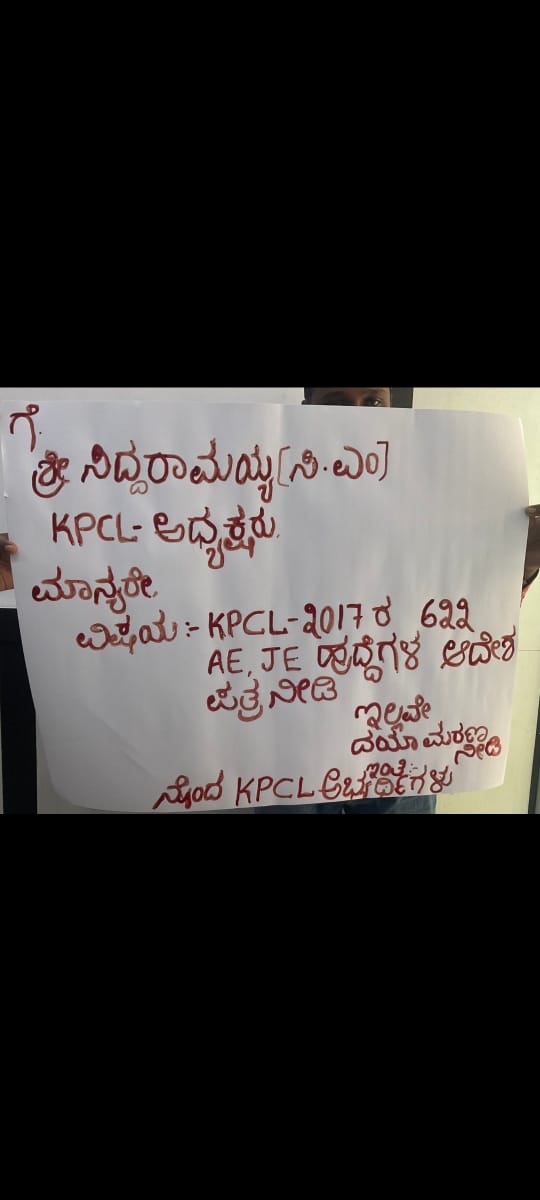 ಗೆ.
ಶ್ರೀ ಸಿದ್ದರಾಮಯ್ಯ [ಸಿ.ಎಂ]
KPCL- ಅಧ್ಯಕ್ಷರು.
ಮಾನ್ಯರೇ,
ವಿಷಯ:- KPCL-2017 ರ 622
AE, JE ಹುದ್ದೆಗಳ ಆದೇಶ
ಪತ್ರ ನೀಡಿ
ಇಲ್ಲವೇ
ದಯಾ ಮರಣ
ನೀಡಿ
ಇಂತಿ:-
ನೊಂದ KPCL ಅಭ್ಯರ್ಥಿಗಳು